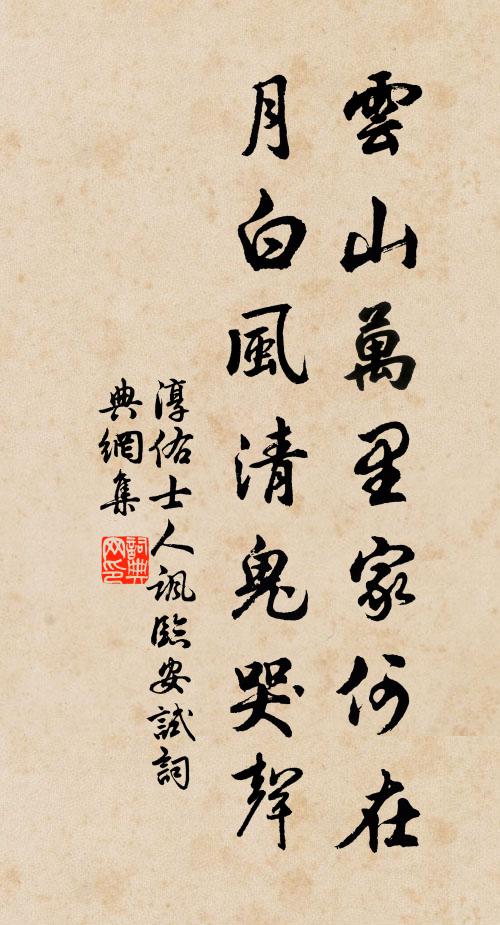 雲山萬里家何在
月白風清鬼哭聲
淳佑士人諷臨安試詞
典網集
詞典網印